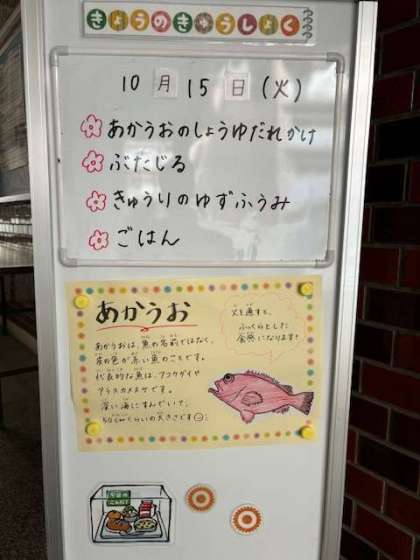 きょうのきゅうしょく
10月15日(火)
あかうおのしょうゆだれかけ
ぶたじる
きゅうりのゆずふうみ
ごはん
あかうお
あかうおは、魚の名前ではなく、
皮の色が赤い魚のことです。
代表的な魚は、アコウダイや
アラスカメヌケです。
深い海にすんでいて、
50cmくらいの大きさです
火を通すと、
ふっくらとした
食感になります!